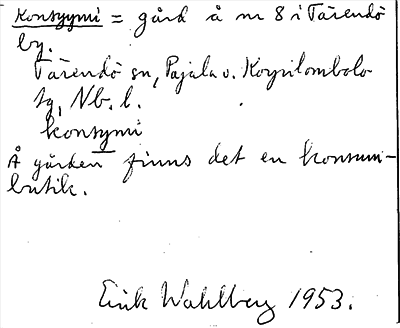 Konsyymi = gård å nr 8 i Tärendö
by.
Tärendö sn, Pajala o. Korpilombolo
tg, Nb. l.
konsymi
Å gården finns det en konsum-
butik.
Erik Wahlberg 1953.